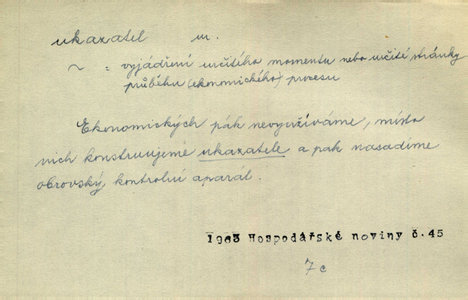 ukazatel m.
~ = vyjádření určitého momentu nebo určité stránky
průběhu (ekonomického) procesu
Ekonomických pák nevyužíváme, místo
nich konstruujeme ukazatele a pak nasadíme
obrovský kontrolní aparát.
1963 Hospodářské noviny č.45
7c